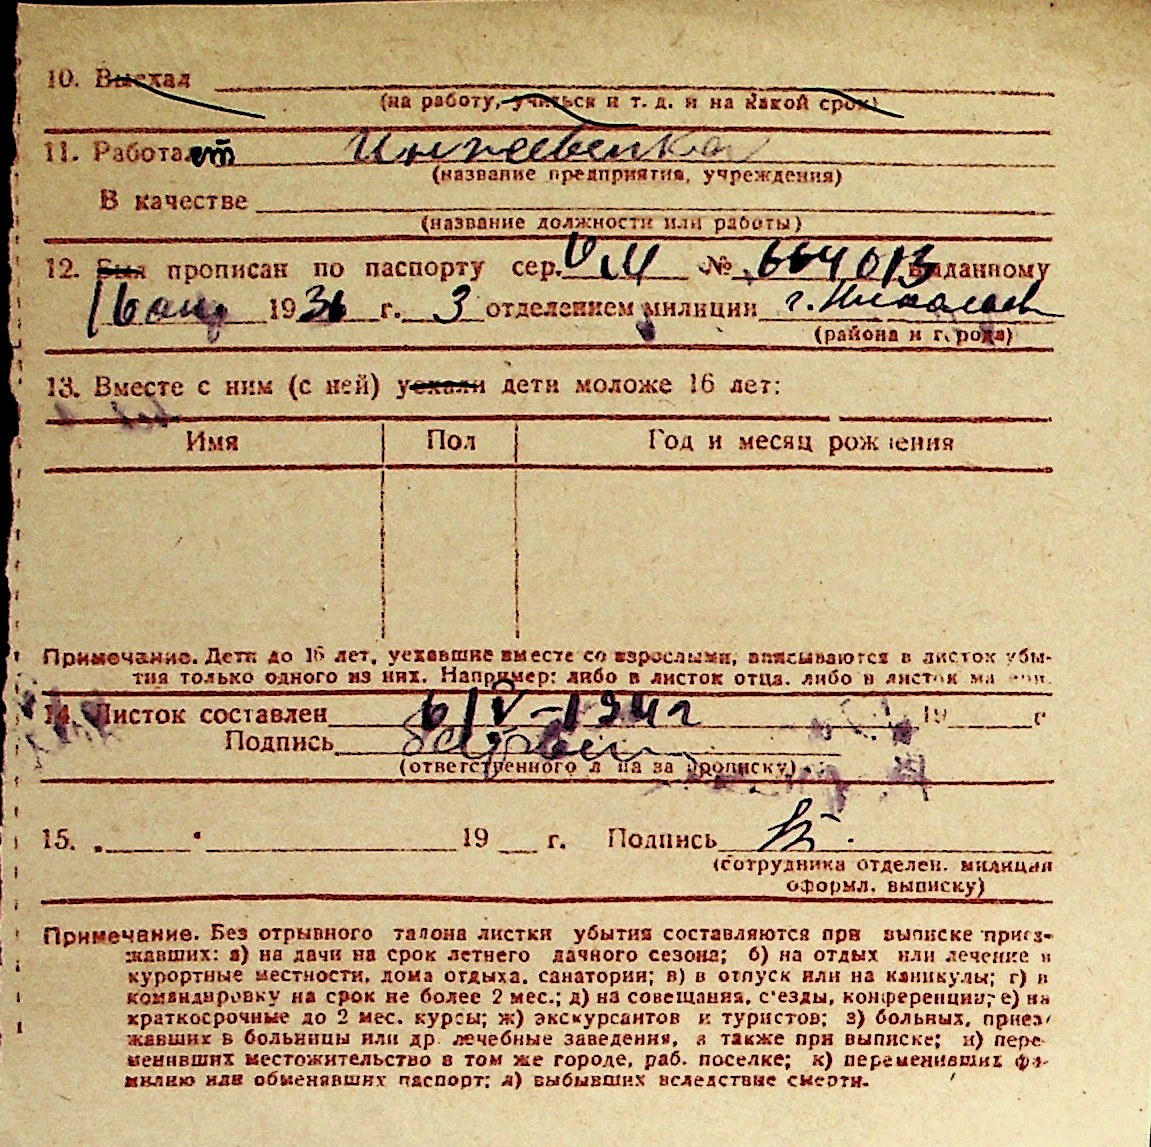 10. Выехал
(на работу, учиться и т. д. и на какой срок)
11. Работает Иждивенка
(название предприятия, учреждения)
В качестве
(название должности или работы)
12. Был прописан по паспорту сер. № 664013 выданному
16 1936 г. 3 отделением милиции г. Николаев
(района и города)
13. Вместе с ним (с ней) уехали дети моложе 16 лет:
Имя Пол Год и месяц рождения
Примечание. Дети до 16 лет, уехавшие вместе со взрослыми, вписываются в листок убы-
тия только одного из них. Например: либо в листок отца, либо в листок матери.
14. Листок составлен 6/IV-1941 19 г
Подпись
(ответственного лица за прописку)
15. „ " 19 г. Подпись
(сотрудника отделен. милиции
оформл. выписку)
Примечание. Без отрывного талона листки убытия составляются при выписке приез-
жавших: а) на дачи на срок летнего дачного сезона; б) на отдых или лечение в
курортные местности, дома отдыха, санатории; в) в отпуск или на каникулы; г) в
командировку на срок не более 2 мес.; д) на совещания, с'езды, конференции; е) на
краткосрочные до 2 мес. курсы; ж) экскурсантов и туристов; з) больных, приез-
жавших в больницы или др. лечебные заведения, а также при выписке; и) пере-
менивших местожительство в том же городе, раб. поселке; к) переменивших фа-
милию или обменявших паспорт; л) выбывших вследствие смерти.